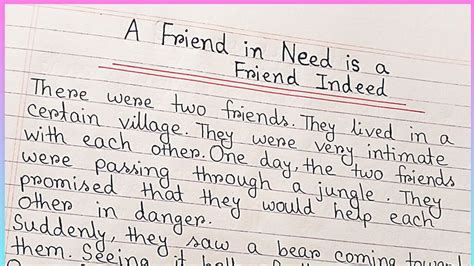 A Friend in Need is a
Friend Indeed
There were two friends. They lived in a
certain village. They were very intimate
with each other. One day, the two friends
were passing through a jungle. They
promised that they would help each
other in danger.
Suddenly, they saw a bear coming toward
them. Seeing it